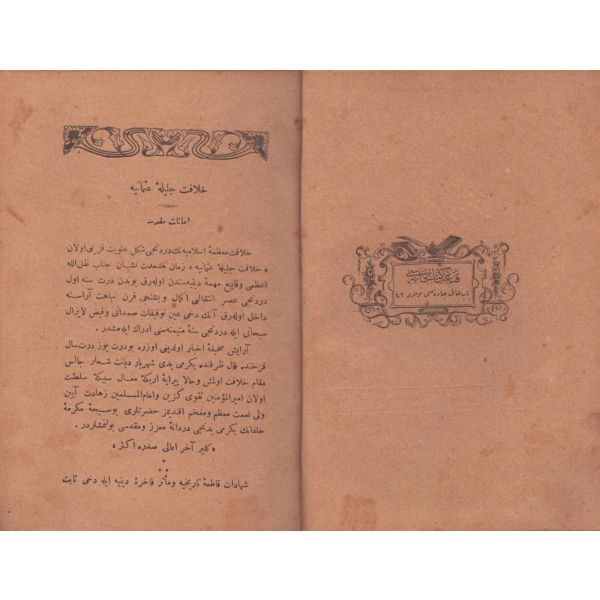 خلافت جلیلۀ عثمانیه
امانات مقدسه
خلافت معظمۀ اسلامیه‌نك دردنجی شكل علویت قرینی اولان
«خلافت جلیلۀ عثمانیه» زمان سعادت نشان جناب ظل‌الله
اعظمی وقایع مهمۀ دینیه‌سندن اوله‌رق بوندن درت سنه اول
دردنجی عصر انتقالنی اكمال و بشنجی قرن نباهت آراسنه
داخل اوله‌رق آنك دخی عین توفیقات صمدانی و فیض لایزال
سبحانی ایله دردنجی سنۀ متیمنه‌سنی ادراك ایله‌مشدر.
آرایش صحیفۀ اخبار اولدیغی اوزره بودرت یوز درت سال
فرخنده فال ظرفنده یكرمی یدی شهریار دیانت شعار جالس
مقام خلافت اولمش وحالا پیرایۀ اریكۀ معال سبیكۀ سلطنت
اولان امیرالمؤمنین تقوی گزین وامام‌المسلمین زهادت آیین
ولی نعمت معظم ومفخم افندیمز حضرتلری بوسبحۀ مكرمۀ
خلفانك یكرمی یدنجی دردانۀ معزز ومقدسی بولنمشلردر.
«كلیر آخر اعالی صدره اكثر»
شهادات قاطعۀ تاریخیه ومآثر فاخرۀ دینیه ایله دخی ثابت
كتابخانه‌سی
باب‌عالی جاده‌سی نومرو ٤٦